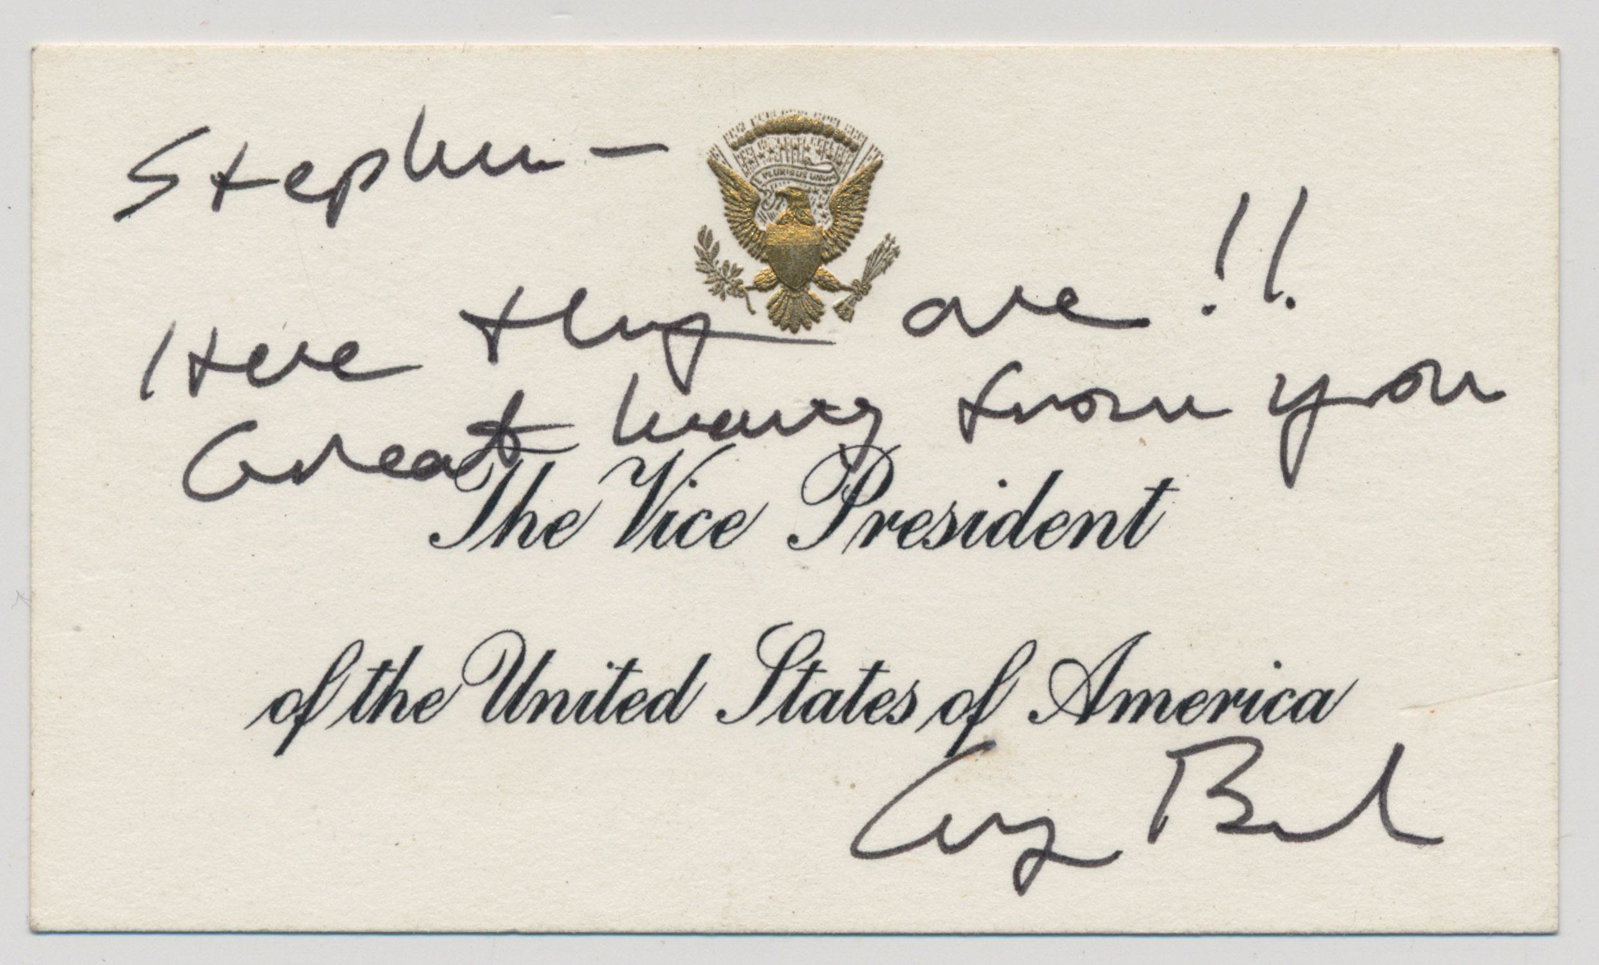 Stephen -
Here they are!!
Great hearing from you
The Vice President
of the United States of America
George Bush